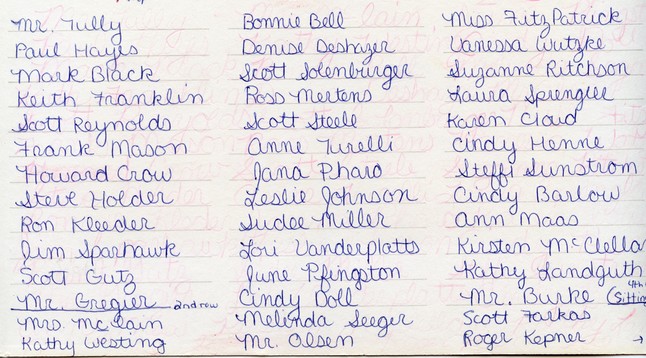 Mr. Tully
Paul Hayes
Mark Black
Keith Franklin
Scott Reynolds
Frank Mason
Howard Crow
Steve Holder
Ron Kleeder
Jim Sparhawk
Scott Gutz
Mr. Gregier andrew
Mrs. McClain
Kathy Westing
Bonnie Bell
Denise Deshazer
Scott Solenburger
Ross Mertens
Scott Steele
Anne Turelli
Jana Pharo
Leslie Johnson
Sudee Miller
Lori Vanderplatts
June Pfingston
Cindy Doll
Melinda Seeger
Mr. Olsen
Miss FitzPatrick
Vanessa Wutzke
Suzanne Ritchson
Laura Sprengle
Karen Cloud
Cindy Henne
Steffi Sunstrom
Cindy Barlow
Ann Maas
Kirsten McClella
Kathy Landguth
Mr. Burke (Sitting 4th
Scott Farkas
Roger Kepner →